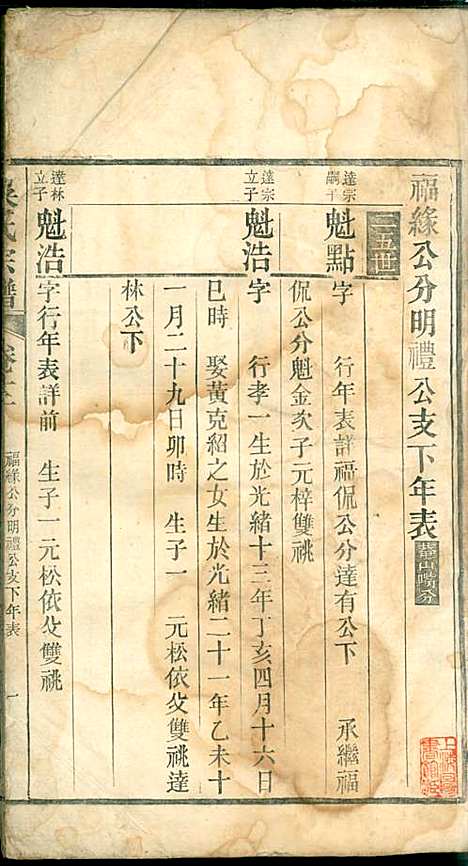 福緣公分明禮公支下年表
三五世
達宗嗣子
魁點 字 行年表詳福侃公分達有公下 承繼福
侃公分魁金次子元梓雙祧
達宗立子
魁浩 字 行孝一生於光緒十三年丁亥四月十六日
巳時 娶黃克紹之女生於光緒二十一年乙未十
一月二十九日卯時 生子一 元松依父雙祧達
林公下
達林立子
魁浩 字行年表詳前 生子一元松依父雙祧
氏宗譜
福緣公分明禮公支下年表 一